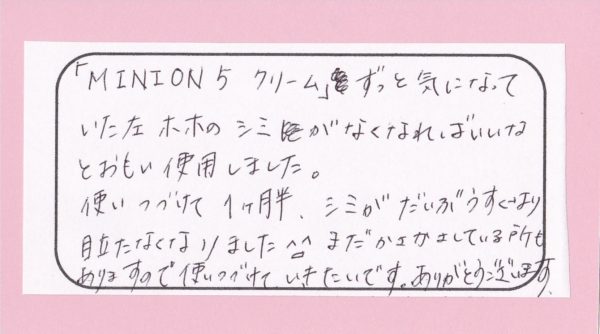 「MINION5 クリーム」ずっと気になって
いた左ホホのシミがなくなればいいな
とおもい使用しました。
使いつづけて1ヶ月半、シミがだいぶうすくなり
目立たなくなりました^^ まだカサカサしている所も
ありますので使いつづけていきたいです。ありがとうございます。